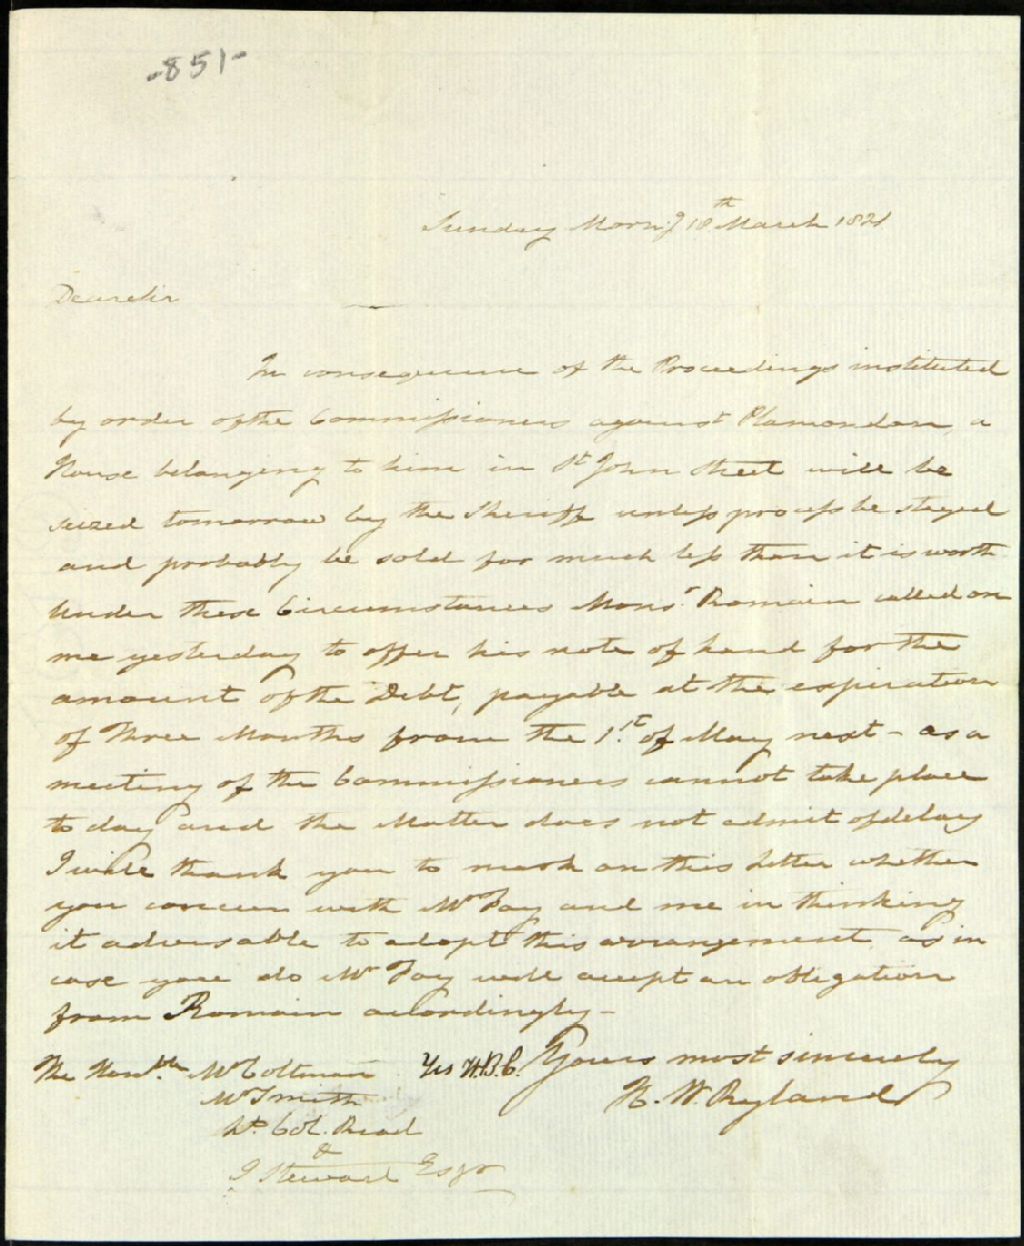 -851-
Sunday Morng 18th March 1821
Dear Sir
In consequence of the Proceedings instituted
by order of the Commissioners against Plamondon, a
House belonging to him in St John Street will be
seized tomorrow by the Sheriff unless process be stayed
and probably be sold for much less than it is worth
Under these Circumstances Monsr Romain called on
me yesterday to offer his note of hand for the
amount of the Debt, payable at the expiration
of Three Months from the 1st of May next - as a
meeting of the Commissioners cannot take place
to day and the Matter does not admit of delay
I will thank you to mark on this Letter whether
you concur with Mr Fay and me in thinking
it adviseable to adopt this arrangement, as in
case you do Mr Fay will accept an obligation
from Romain accordingly -
Yours most sincerely
H. W. Ryland
The Honble Mr Coltman Yes W.B.C.
Mr Smith
Lt. Col. Read
&
J Stewart Esqr